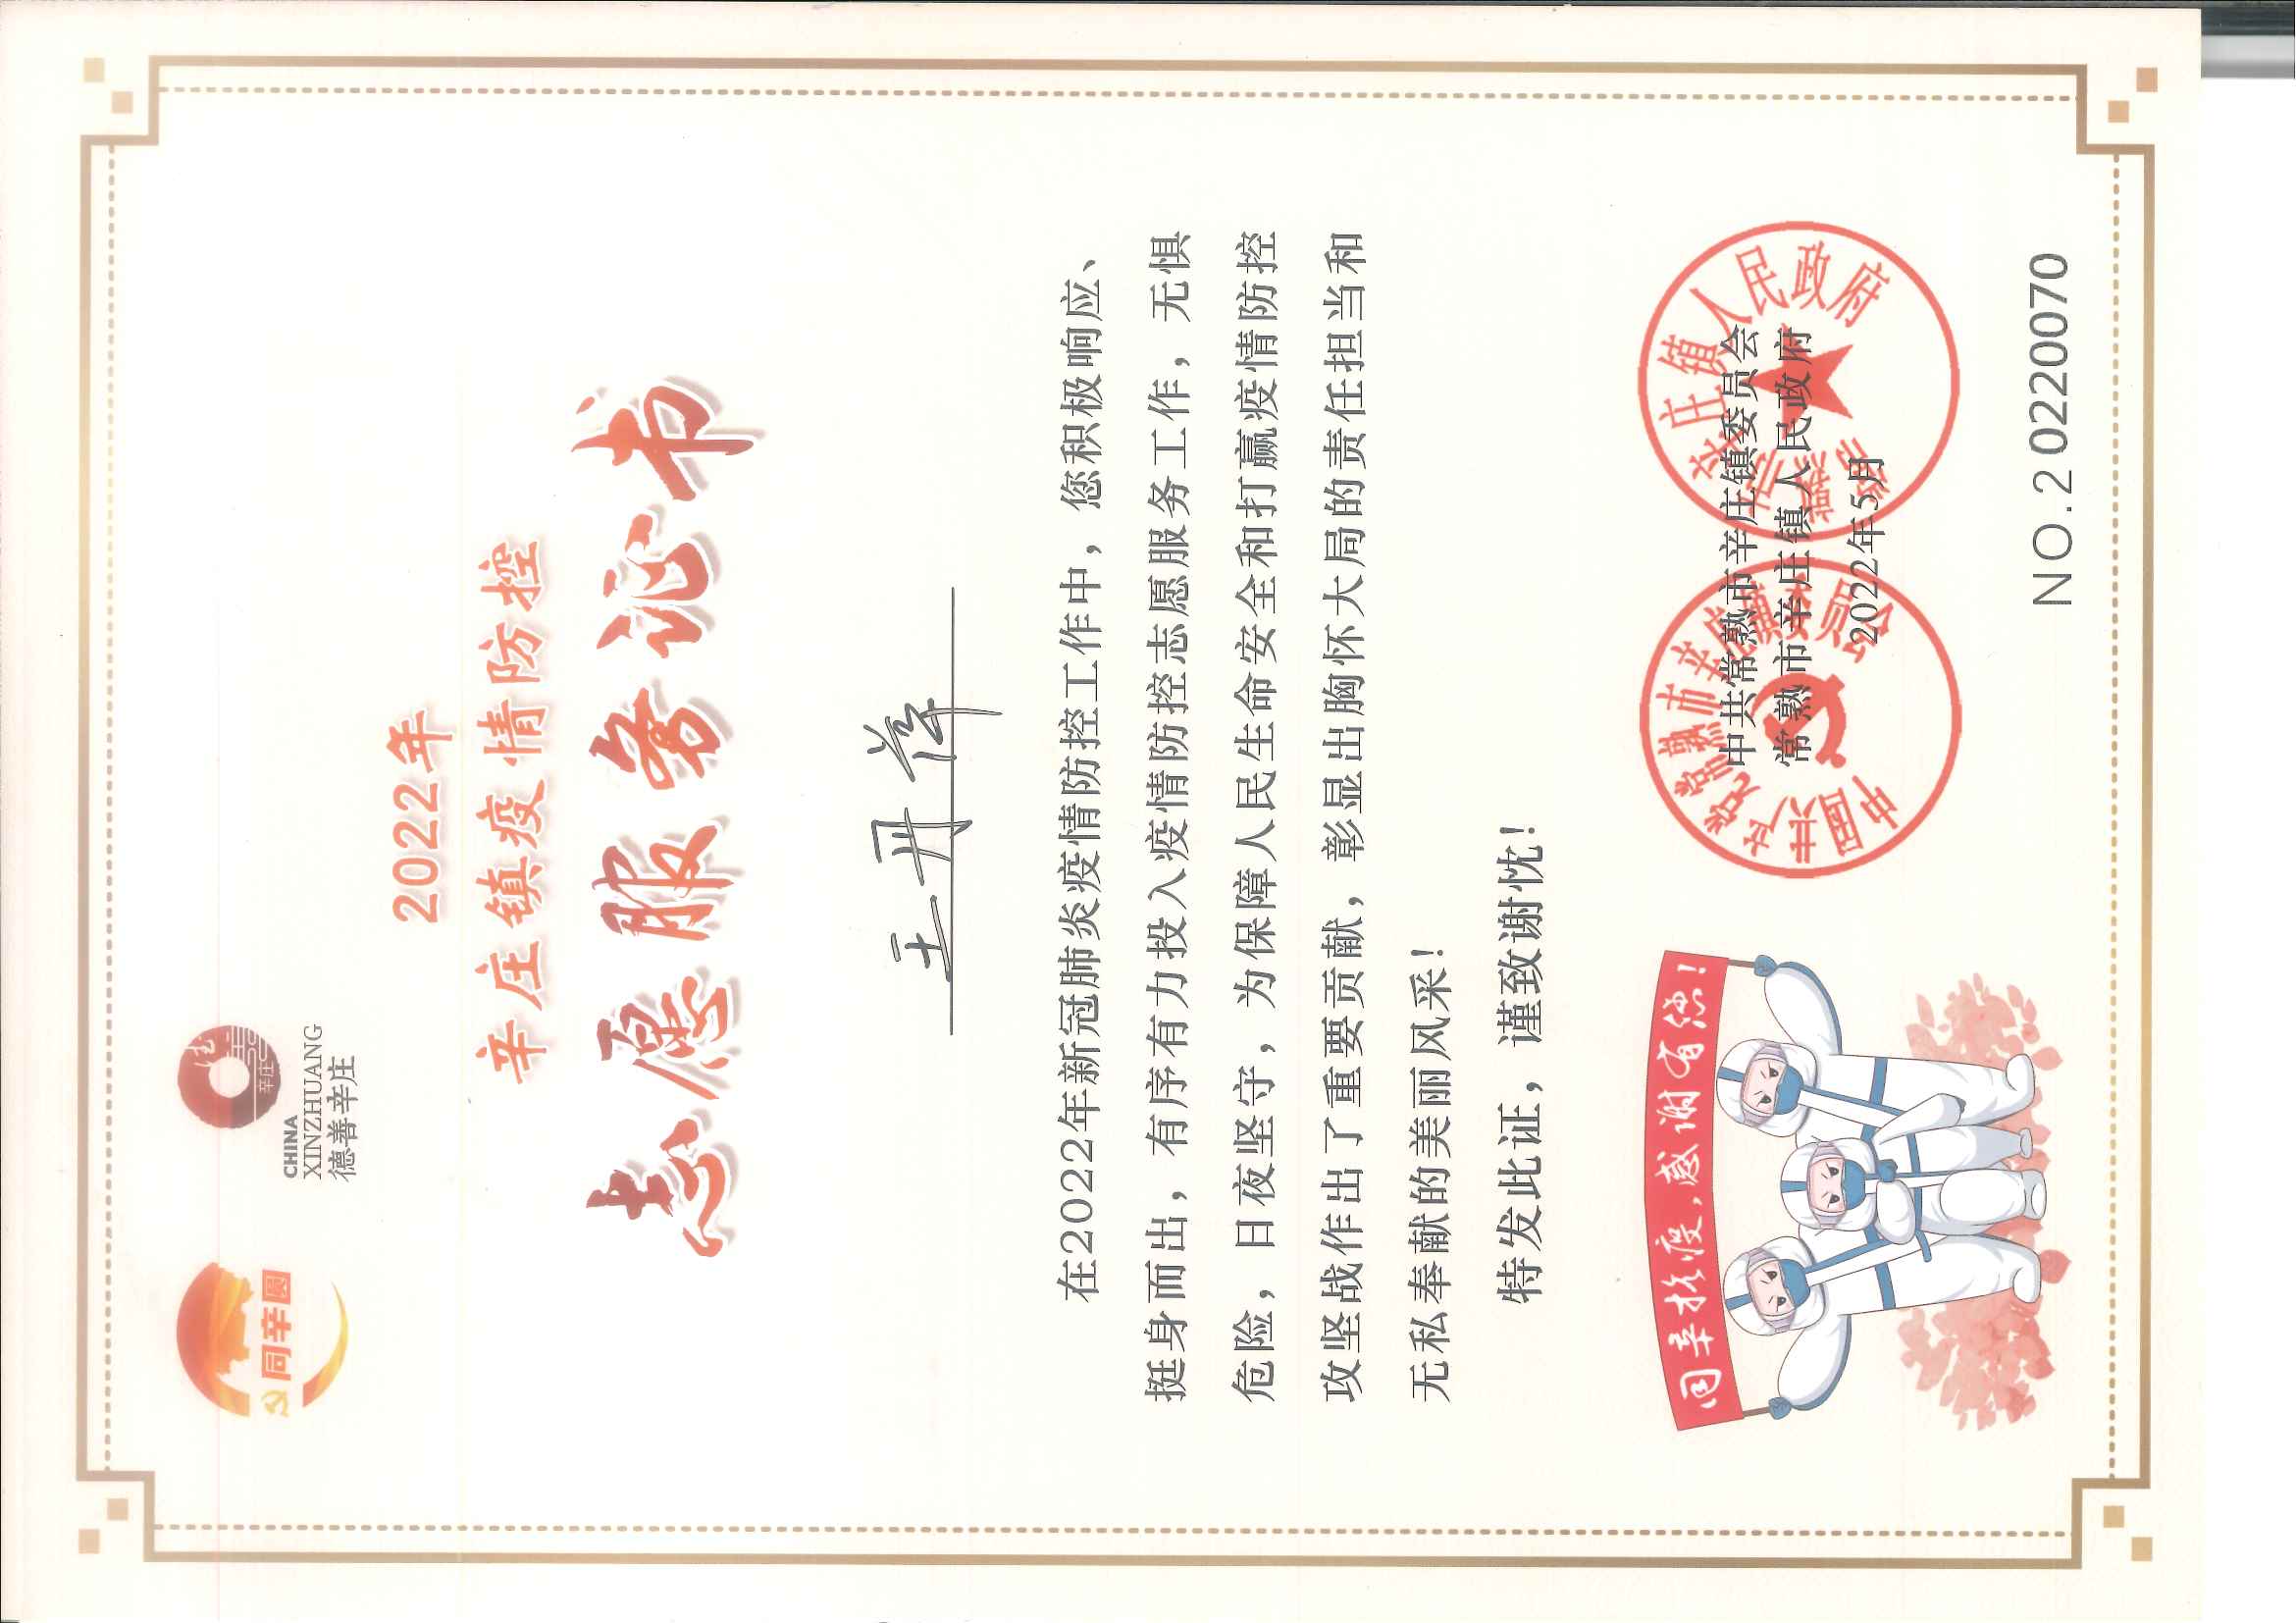 同辛圆
辛庄
CHINA
XINZHUANG
德善辛庄
2022年
辛庄镇疫情防控
志愿服务证书
王丹萍
在2022年新冠肺炎疫情防控工作中，您积极响应、
挺身而出，有序有力投入疫情防控志愿服务工作，无惧
危险，日夜坚守，为保障人民生命安全和打赢疫情防控
攻坚战作出了重要贡献，彰显出胸怀大局的责任担当和
无私奉献的美丽风采！
特发此证，谨致谢忱！
同辛抗疫，感谢有您！
中国共产党常熟市辛庄镇委员会
常熟市辛庄镇人民政府
中共常熟市辛庄镇委员会
常熟市辛庄镇人民政府
2022年5月
NO.20220070